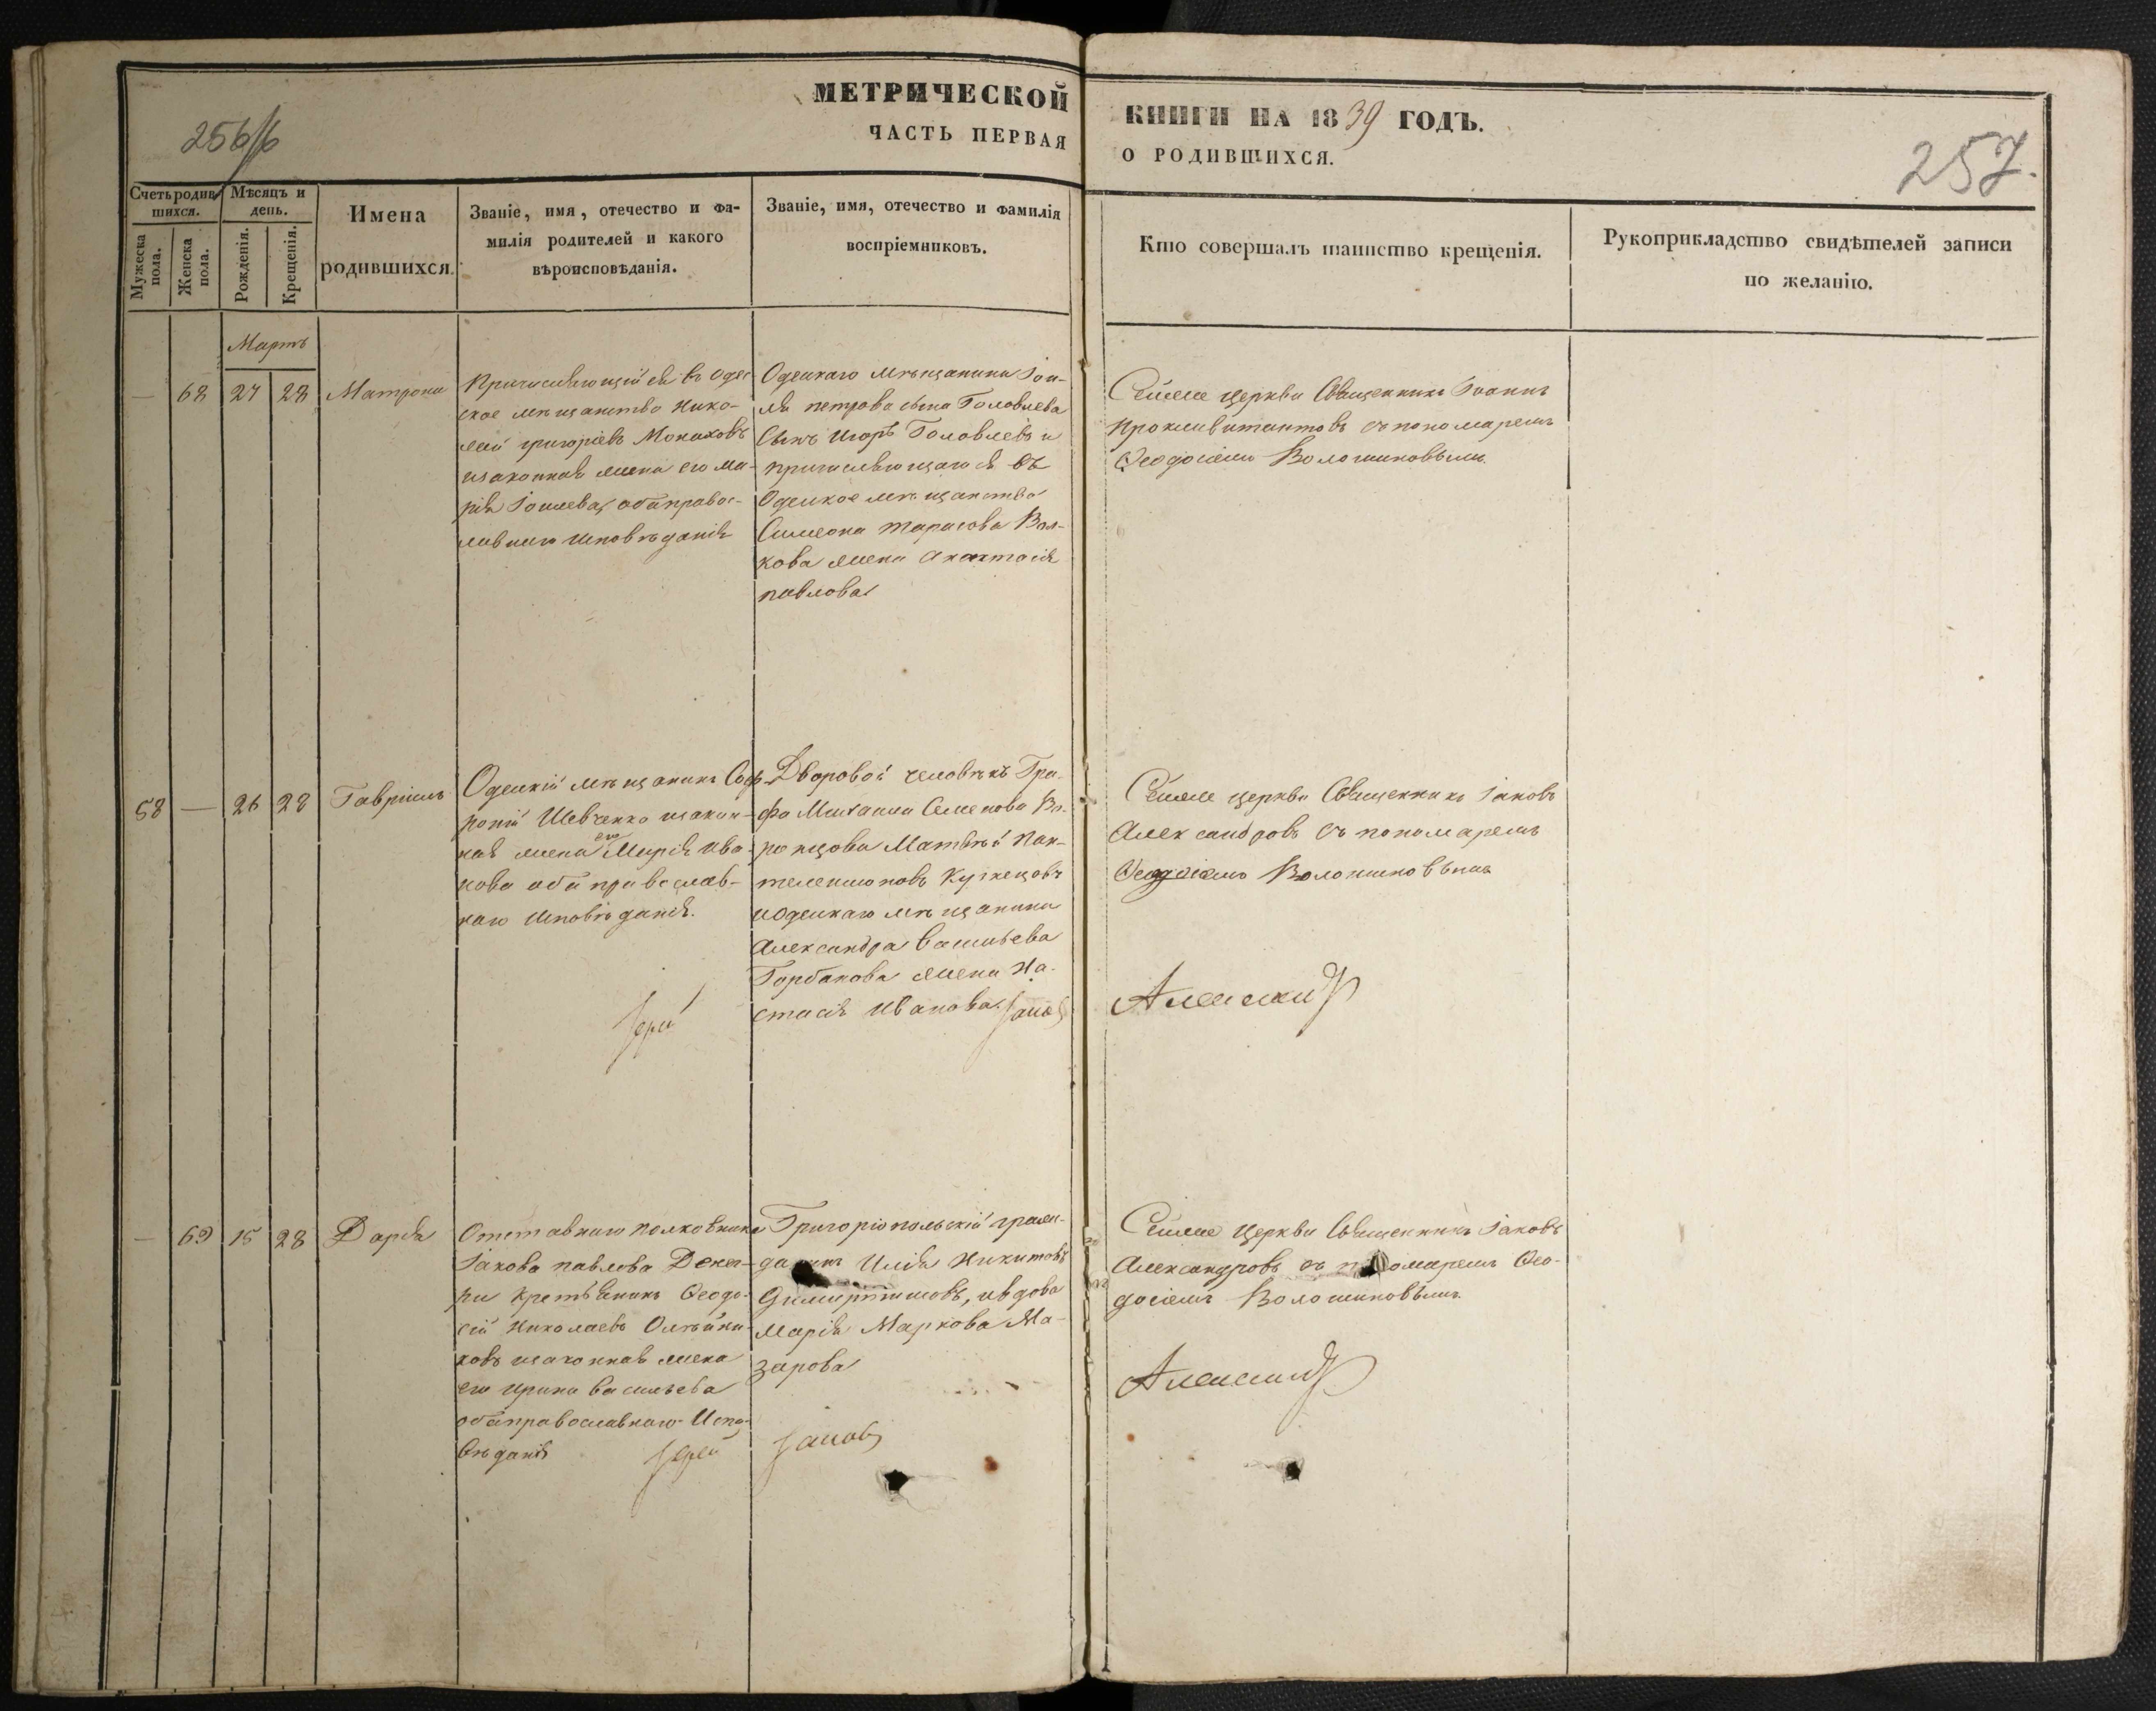 МЕТРИЧЕСКОЙ
КНИГИ НА 1839 ГОДЪ.
ЧАСТЬ ПЕРВАЯ
О РОДИВШИХСЯ.
257.
Счетъ родив-
шихся.
Мужеска
пола.
Женска
пола.
Мѣсяцъ и
день.
Рожденія.
Крещенія.
Имена
родившихся.
Званіе, имя, отечество и фа-
милія родителей и какого
вѣроисповѣданія.
Званіе, имя, отечество и фамилія
воспріемниковъ.
Кто совершалъ таинство крещенія.
Рукоприкладство свидѣтелей записи
по желанію.
Мартъ
— 68 27 28 Матрона
Причисляющійся въ Одес-
ское мѣщанство Нико-
лай григоріевъ Монаховъ
изаконная жена его Ма-
рія обаправос-
лавнаго исповѣданія
Одескаго мѣщанина
петрова сына Головлева
Сынъ Игорь Головлевъ и
причисляющагося въ
Одеское мѣщанство
Симеона тарасова Вол-
кова жена
павлова
Сейже церкви Священникъ Іоаннъ
съ пономаремъ
Ѳеодосіемъ Волошиновымъ.
58 — 26 28 Гавріилъ
Одескій мѣщанинъ Соф-
роній Шевченко изакон-
ная жена его Марія Ива-
нова оба православ-
наго исповѣданія.
Іерей
Дворовой человѣкъ Гра-
фа Михаила Семенова Во-
ронцова Матвѣй Пан-
телеимоновъ Кузнецовъ
иодескаго мѣщанина
Александра Васильева
Горбанова жена На-
стасія Иванова. Іаковъ
Сейже церкви Священникъ Іаковъ
Александровъ съ пономаремъ
Ѳеодосіемъ Волошиновымъ
— 69 15 28 Дарія
Отставнаго полковника
Іакова павлова
Ѳеодо-
сій Николаевъ Олѣйни-
ковъ изаконная жена
его Ирина Васильева
обаправославнаго Испо-
вѣданія Іерей
Григоріопольскій граж-
данинъ Илія Никитовъ
ивдова
Марія Маркова
Іаковъ
Сейже Церкви Священникъ Іаковъ
Александровъ съ пономаремъ Ѳео-
досіемъ Волошиновымъ.